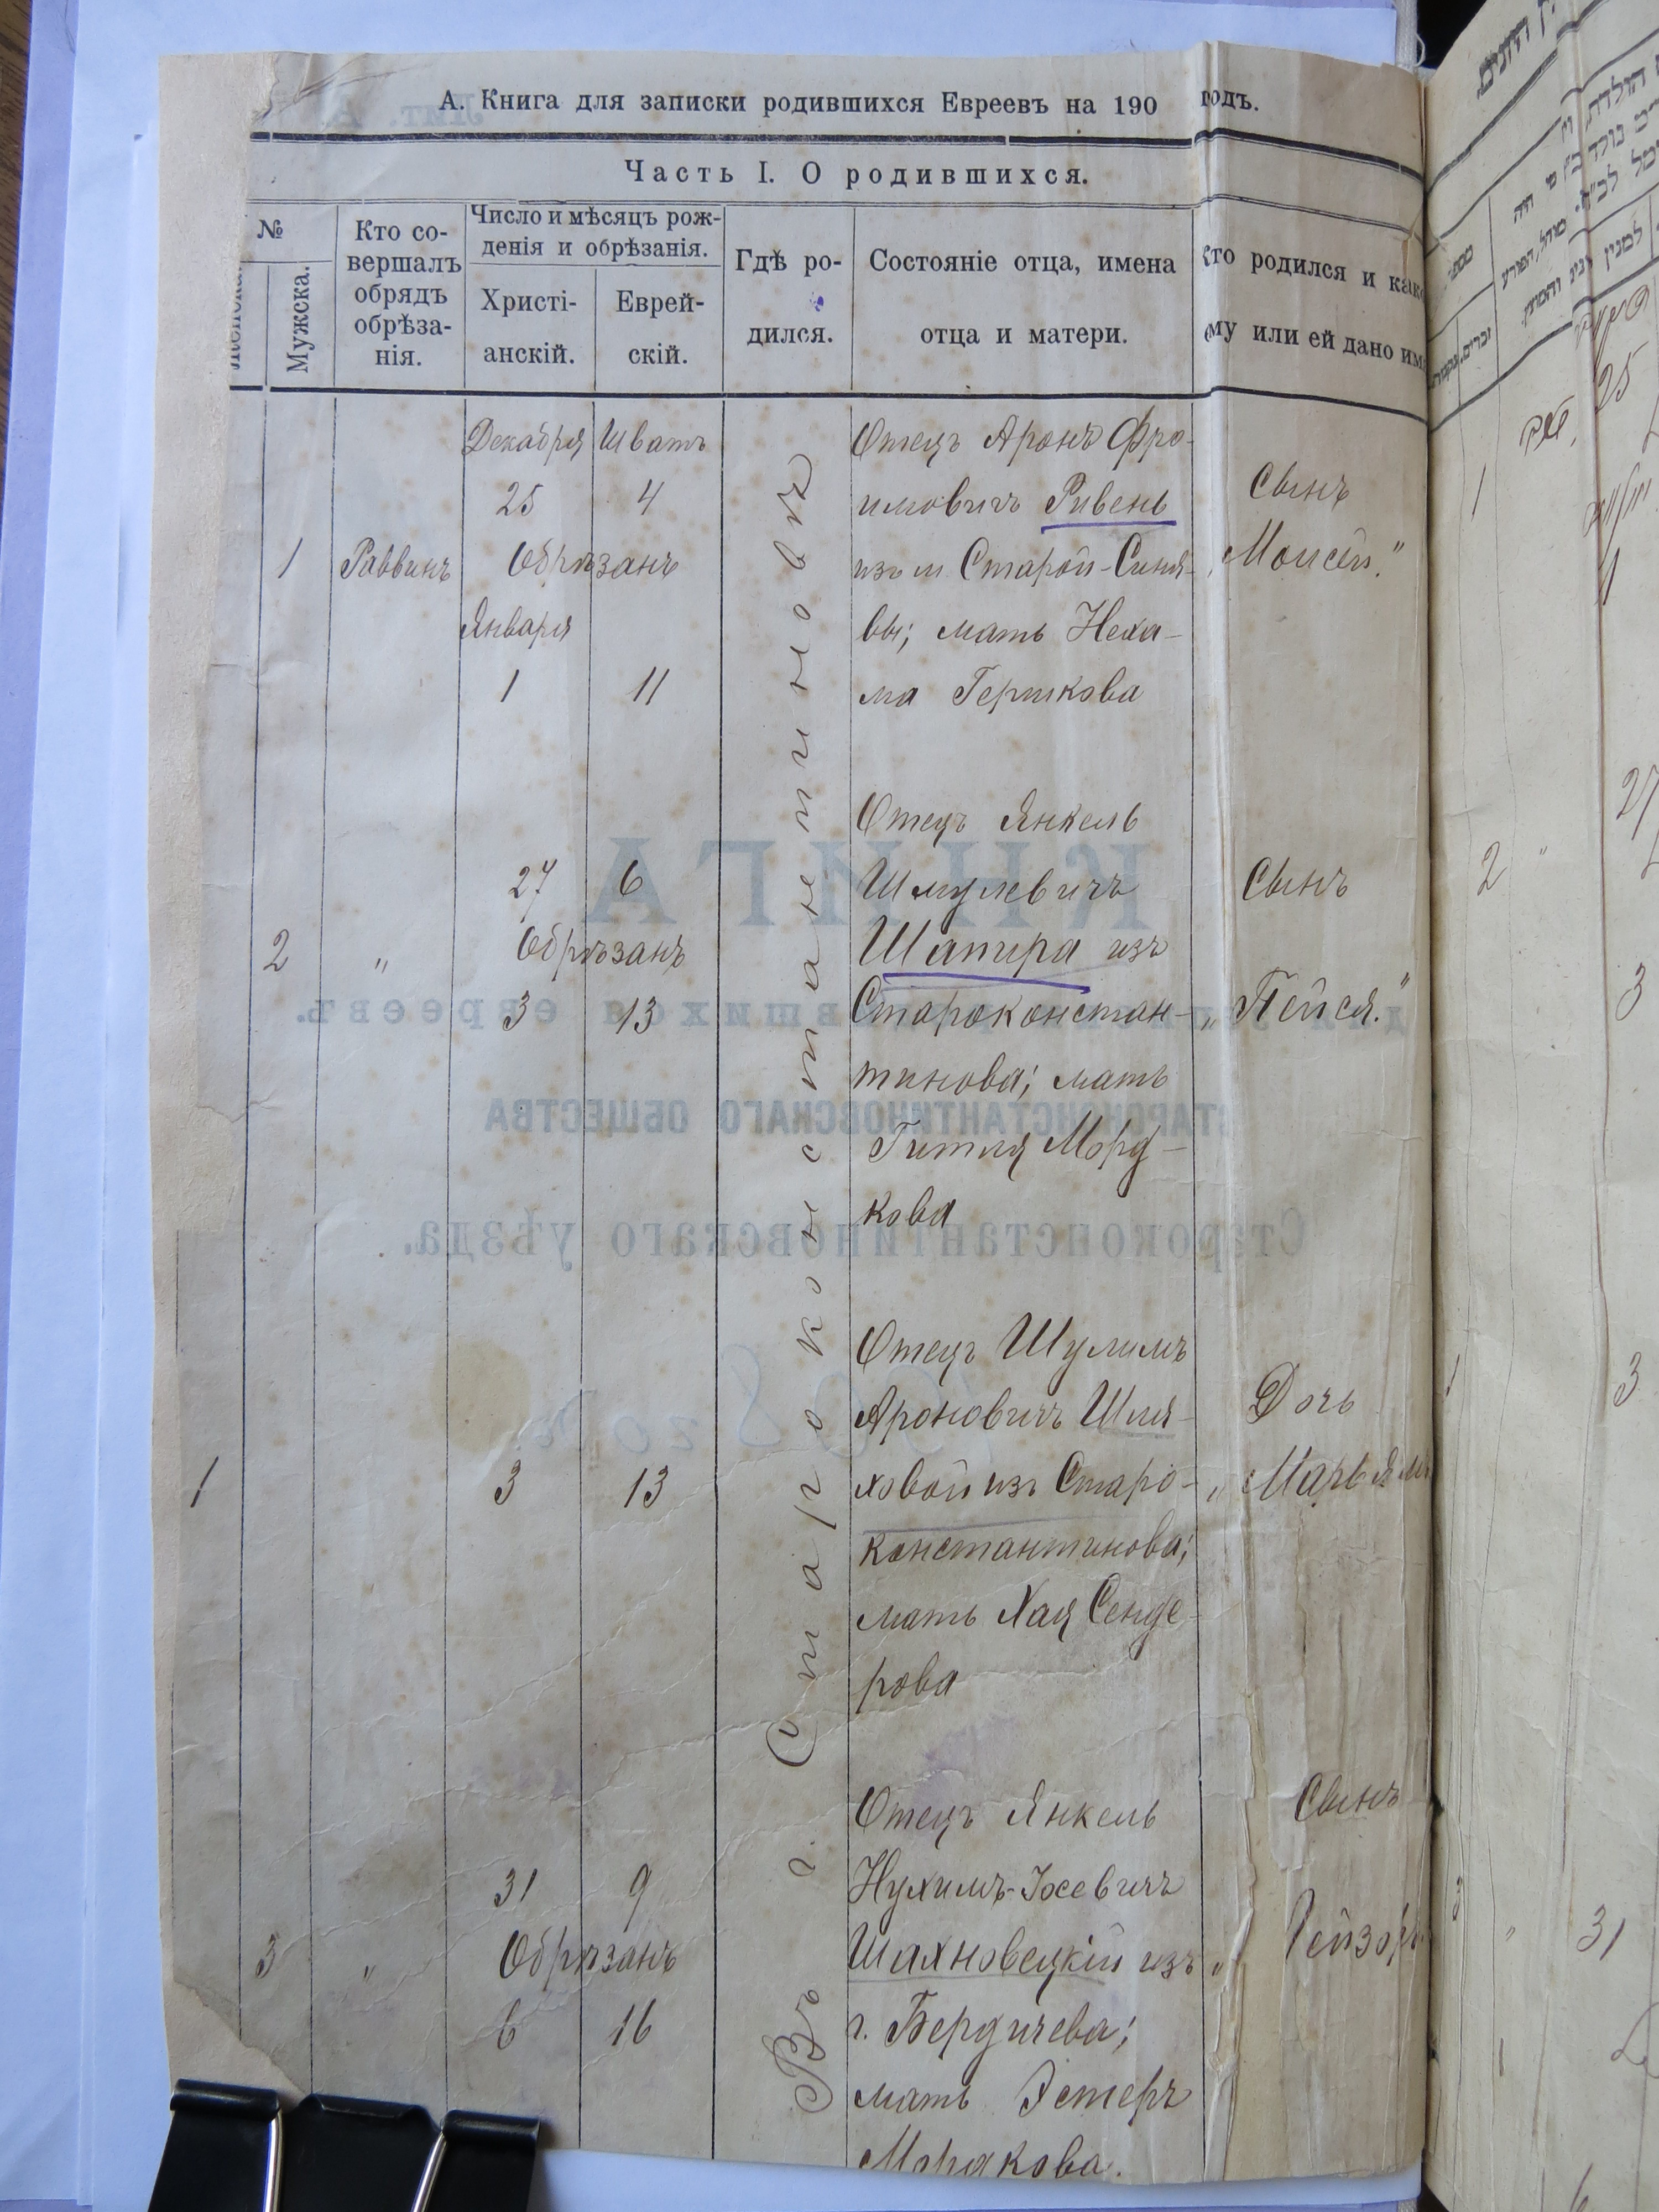 А. Книга для записки родившихся Евреевъ на 190 годъ.
Часть I. О родившихся.
№
Мужска.
Кто со-
вершалъ
обрядъ
обрѣза-
нія.
Число и мѣсяцъ рож-
денія и обрѣзанія.
Христі-
анскій.
Еврей-
скій.
Гдѣ ро-
дился.
Состояніе отца, имена
отца и матери.
Кто родился и како
ему или ей дано имя
Въ г. Староконстантиновѣ
Декабря Шватъ
25 4
1 Раввинъ Обрѣзанъ
Января
1 11
Отецъ Аронъ Фро-
имовичъ Ривень
изъ м Старой-Синя-
вы; мать Неха-
ма Гершкова
Сынъ
„Моисей."
27 6
2 „ Обрѣзанъ
3 13
Отецъ Янкель
Шмулевичъ
Шапира изъ
Староконстан-
тинова; мать
Гитля Морд-
кова
Сынъ
„Пейся."
1 3 13
Отецъ Шулимъ
Ароновичъ Шля-
ховой изъ Старо-
константинова;
мать Хая Сенде-
рова
Дочь
„Марьямъ
31 9
3 „ Обрѣзанъ
6 16
Отецъ Янкель
Нухимъ-Іосевичъ
Шахновецкій изъ
г. Бердичева;
мать Эстеръ
Мордкова.
Сынъ
„Лейзоръ
КНИГА
шихся евреевъ.
СТАРОКОНСТАНТИНОВСКАГО ОБЩЕСТВА
Староконстантиновскаго уѣзда.
25
1
27
2 „
3
1 3
3 „ 31